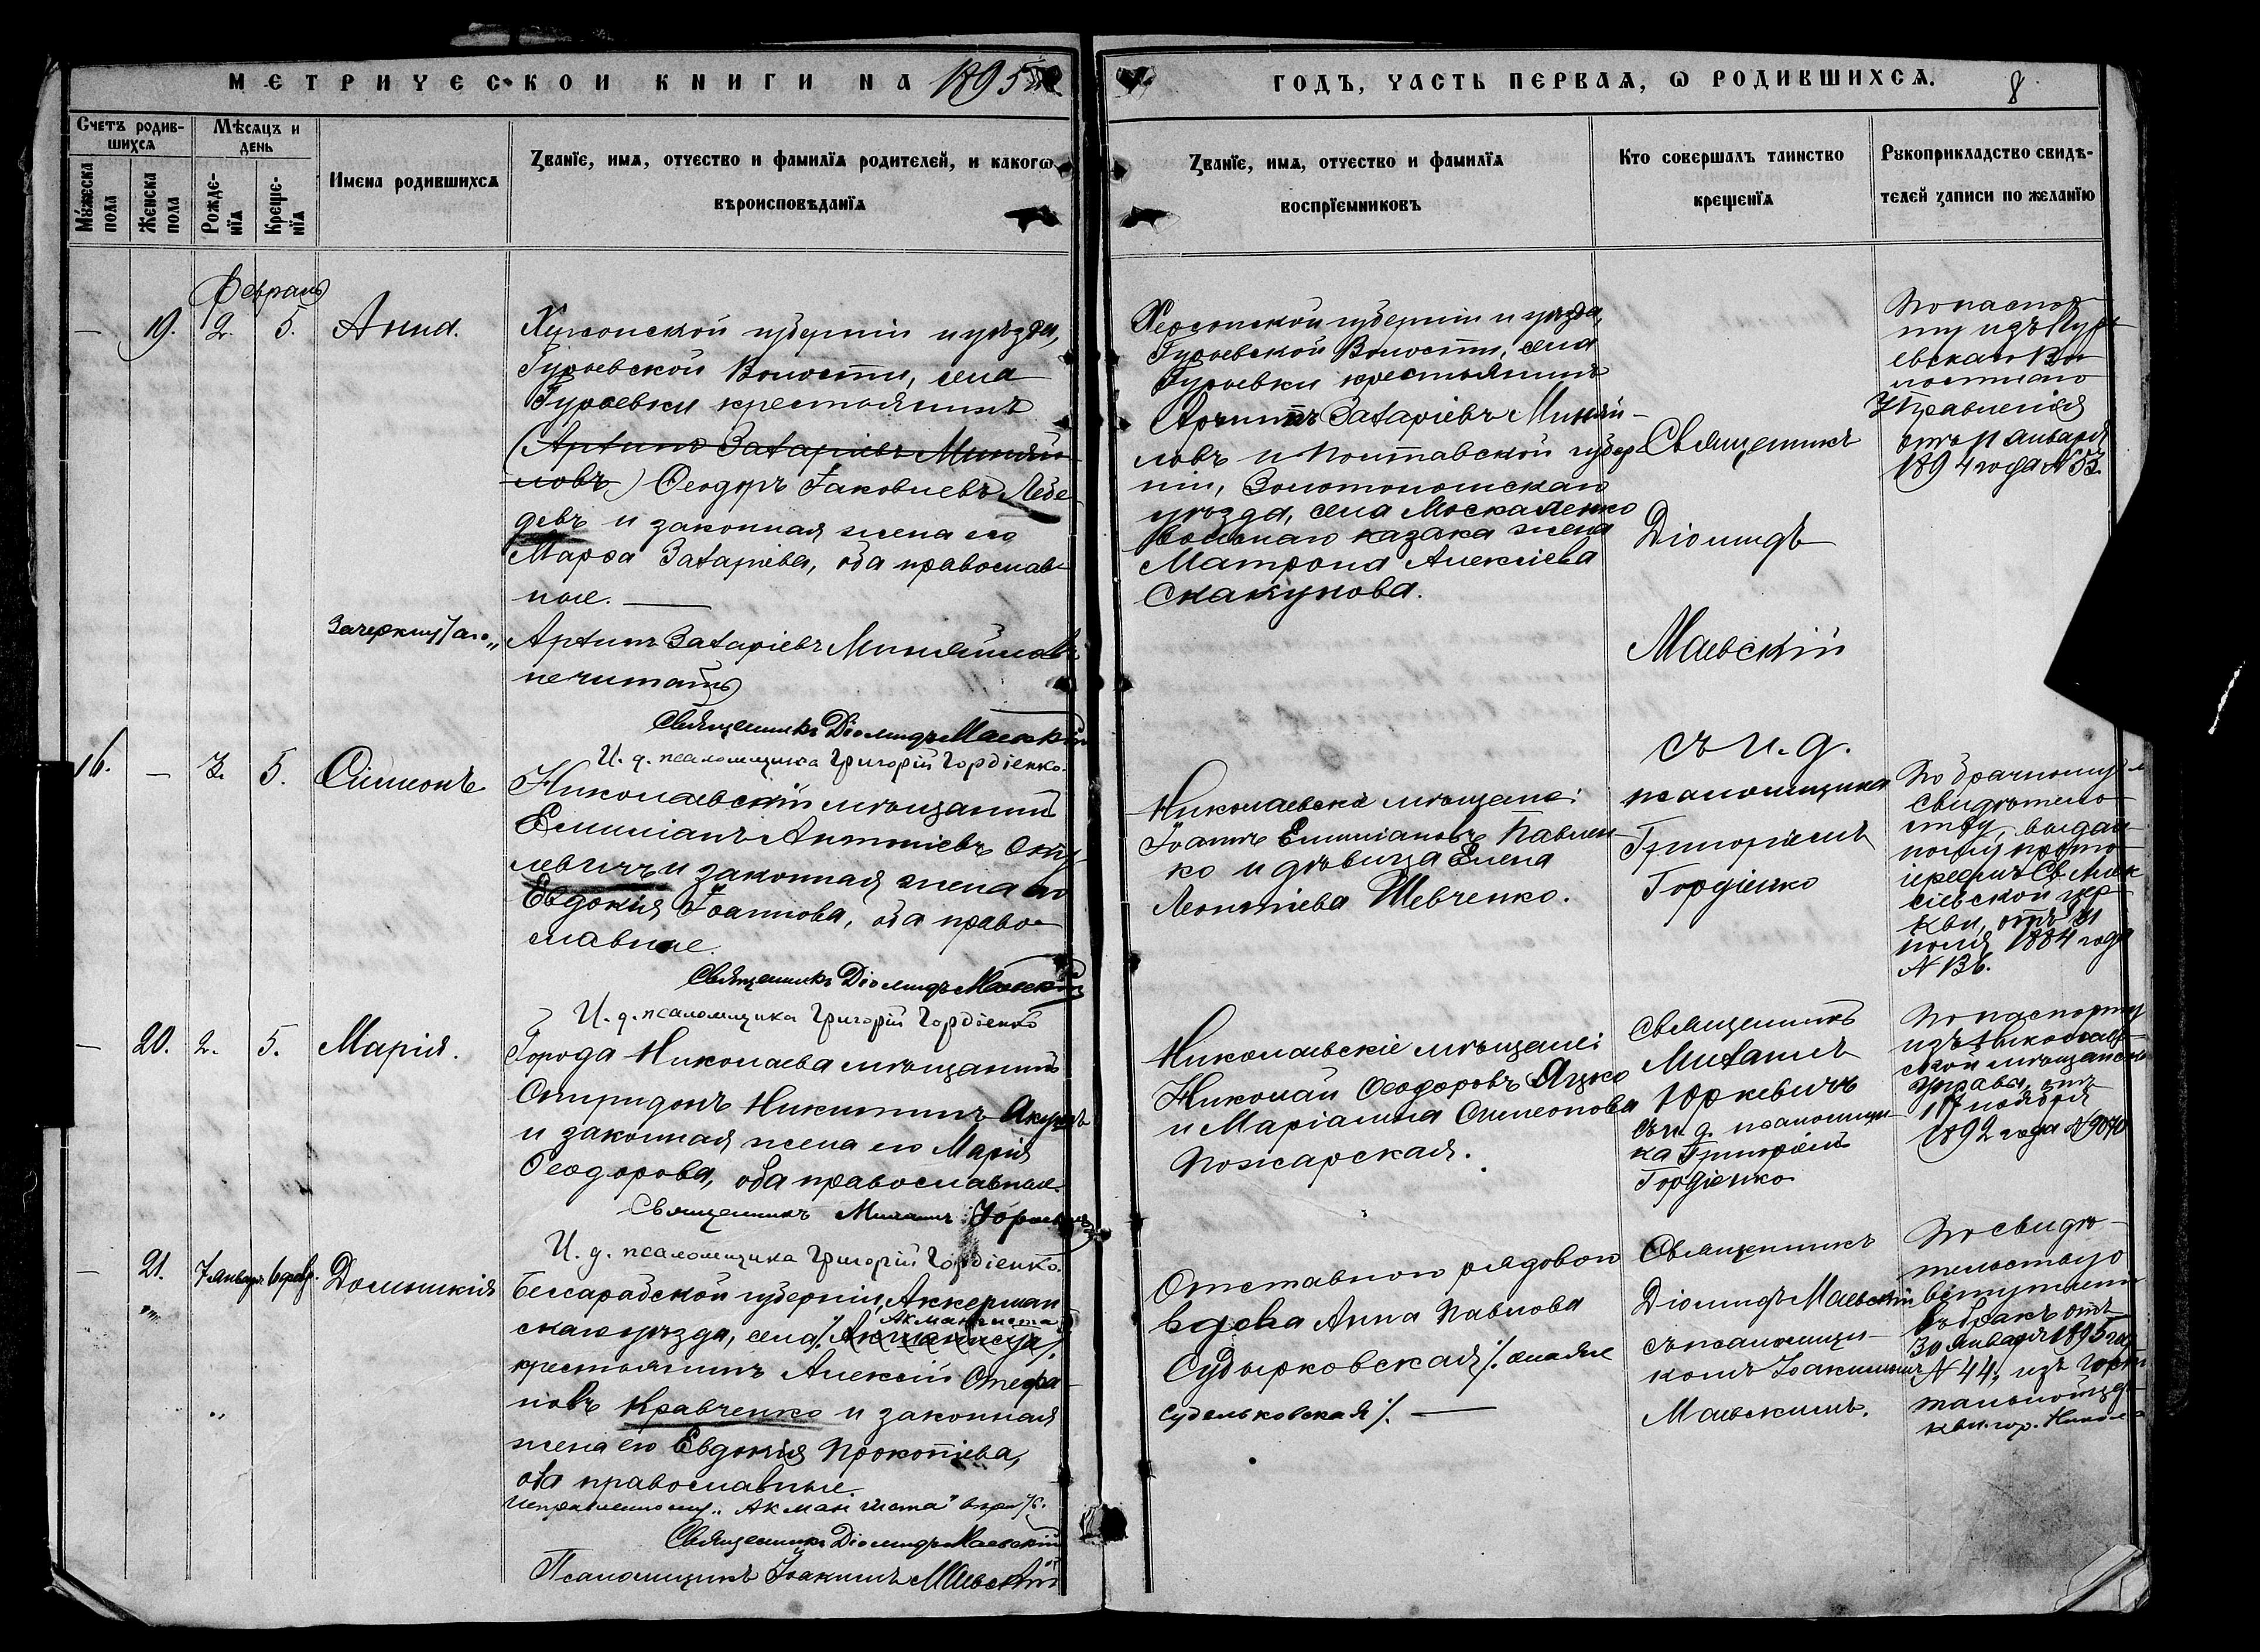 МЕТРИЧЕСКОЙ КНИГИ НА 1895 ГОДЪ, ЧАСТЬ ПЕРВАЯ, Ѡ РОДИВШИХСЯ. 8
Счетъ родив-
шихся
Мужеска
пола
Женска
пола
Мѣсяцъ и
день
Рожде-
нія
Креще-
нія
Имена родившихся
Званіе, имя, отчество и фамилія родителей, и какогѡ
вѣроисповѣданія
Званіе, имя, отчество и фамилія
воспріемниковъ
Кто совершалъ таинство
крещенія
Рукоприкладство свидѣ-
телей записи по желанію
Февраль
— 19. 2. 5. Анна.
Херсонской губерніи и уѣзда,
Гурьевской Волости, села
Гурьевки крестьянинъ
(Архипъ Захаріевъ Миняй-
ловъ) Ѳеодоръ Іаковлевъ Лебе-
девъ и законная жена его
Марѳа Захаріева, оба православ-
ные.
Зачеркнутаго „Архипъ Захаріевъ Миняйловъ
не читать
Священникъ Діомидъ Маевскій
И. д. псаломщика Григорій Гордіенко.
Херсонской губерніи и уѣзда,
Гурьевской Волости, села
Гурьевки крестьянинъ
Архипъ Захаріевъ Миняй-
ловъ и Полтавской губер-
ніи, Золотоношскаго
уѣзда, села Москаленко
казака жена
Матрона Алексіева
Скакунова.
Священникъ
Діомидъ
Маевскій
съ и. д.
псаломщика
Григоріемъ
Гордіенко
По паспор-
ту изъ Гурь-
евскаго Во-
лостнаго
Правленія
отъ 11 января
1894 года № 33.
16. — 3. 5. Симеонъ
Николаевскій мѣщанинъ
Емиліанъ Антоніевъ Сту-
левичъ и законная жена его
Евдокія Іоаннова, оба право-
славные.
Священникъ Діомидъ Маевскій
И. д. псаломщика Григорій Гордіенко
Николаевскіе мѣщане:
Іоаннъ Емиліановъ Павлен-
ко и дѣвица Елена
Леонтіева Шевченко.
По брачному
свидѣтель-
ству, выдан-
ному прото-
іереемъ Св. Алек-
сіевской цер-
кви, отъ 31
1884 года
№ 136.
— 20. 2. 5. Марія.
Города Николаева мѣщанинъ
Спиридонъ Никитинъ
и законная жена его Марія
Ѳеодорова, оба православные.
Священникъ Михаилъ Юркевичъ
И. д. псаломщика Григорій Гордіенко.
Николаевскіе мѣщане:
Николай Ѳеодоровъ Яцко
и Маріанна Симеонова
Пожарская.
Священникъ
Михаилъ
Юркевичъ
съ и. д. псаломщи-
ка Григоріемъ
Гордіенко
По паспорту
изъ Николаев-
ской мѣщанской
Управы, отъ
17 ноября
1892 года № 9040
— 21. 7 январ. 6 февр. Домникія
Бессарабской губерніи, Аккерман-
скаго уѣзда, села
Акмангиста
крестьянинъ Алексій Стефа-
новъ Кравченко и законная
жена его Евдокія Прокопіева,
оба православные.
Исправленному „Акмангиста“ вѣрить.
Священникъ Діомидъ Маевскій
Псаломщикъ Іоакимъ Маевскій
Отставной рядовой
вдова Анна Павлова
Судырковская /. она же
Судельковская /. —
Священникъ
Діомидъ Маевскій
съ псаломщи-
комъ Іоакимомъ
Маевскимъ.
По свидѣ-
тельству о
вступленіи
въ бракъ отъ
30 января 1895 года
№ 44, изъ Госпи-
тальной цер-
кви гор. Никол